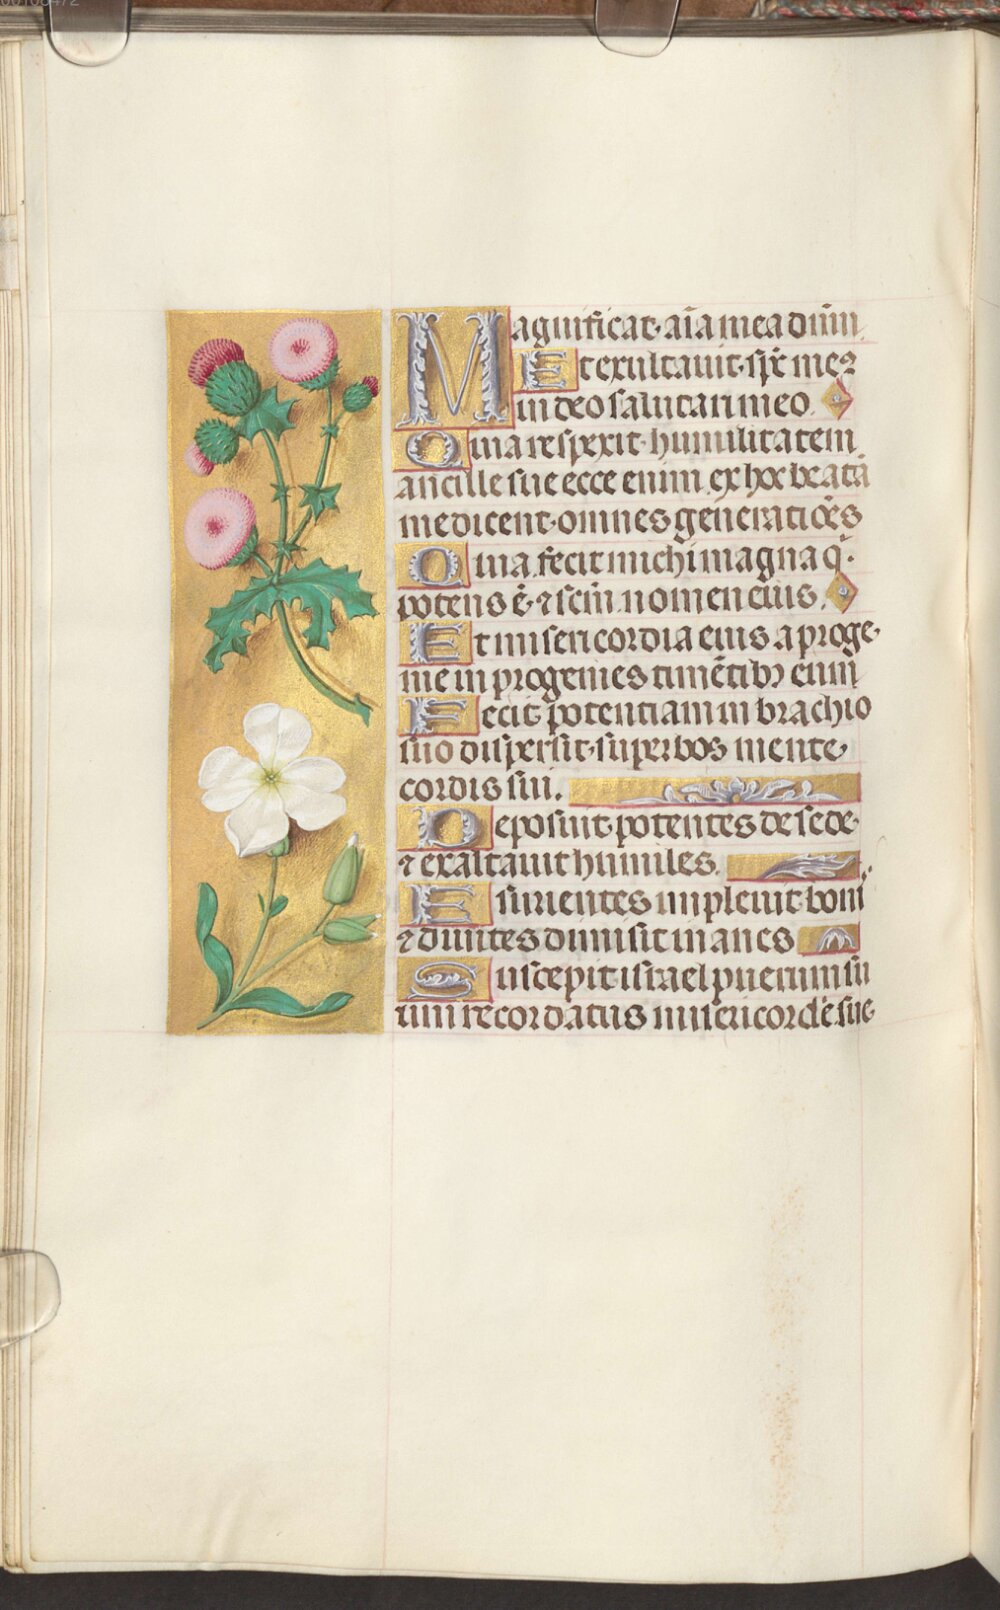 Magnificat aīa mea dn̄m
Et exultavit sp̄c meꝰ
in deo salutari meo
Quia respexit humilitatem
ancille sue ecce enim ex hoc beatā
me dicent omnes generatiōēs
Quia fecit michi magna q̄
potens ē ⁊ scm̄ nomen eius.
Et misericordia eius a proge
nie in progenies timētibꝫ eum
Fecit potentiam in brachio
suo dispersit superbos mente
cordis sui.
Deposuit potentes de sede
⁊ exaltavit humiles.
Esurientes implevit boni
⁊ divites dimisit inanes
Suscepit israel puerum su
um recordatus misericordē sue